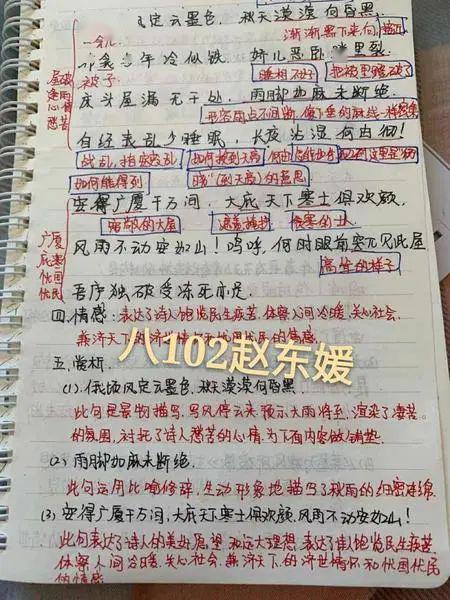 风定云墨色，秋天漠漠向昏黑
一会儿
渐渐黑下来 向：接近
布衾多年冷似铁 娇儿恶卧 里裂
被子
睡相不好
把被里蹬破了
屋破漏雨心情愁苦
床头屋漏无干处，雨脚如麻未断绝
形容雨点不间断，像下垂的麻线一样密集
自经丧乱少睡眠，长夜沾湿何由彻！
战乱，指安史乱
如何挨到天亮
何由
如何能得到
晓"(到天亮)的意思
安得广厦千万间，大庇天下寒士俱欢颜，
宽敞的大屋
遮盖掩护
贫寒的士人
风雨不动安如山！呜呼，何时眼前突兀见此屋
高耸的样子
广厦庇寒忧国忧民
吾庐独破受冻死亦足
四.情感：表达了诗人饱览民生疾苦.体察人间冷暖.关心社会.
兼济天下的济世情怀和忧国忧民的情感
八102赵东媛
五.赏析.
(1).俄顷风定云墨色.秋天漠漠向昏黑
此句是景物描写.写风停云来 预示大雨将至，渲染了凄苦
的氛围，衬托了诗人愁苦的心情 为下面内容做铺垫
(2).雨脚如麻未断绝.
此句运用比喻修辞，生动形象地描写了秋雨的细密连绵.
(3)安得广厦千万间，大庇天下寒士俱欢颜.风雨不动安如山！
此句表达了诗人的美好愿望和远大理想，表达了诗人饱览民生疾苦
体察人间冷暖.关心社会.兼济天下的济世情怀和忧国忧民
的情感